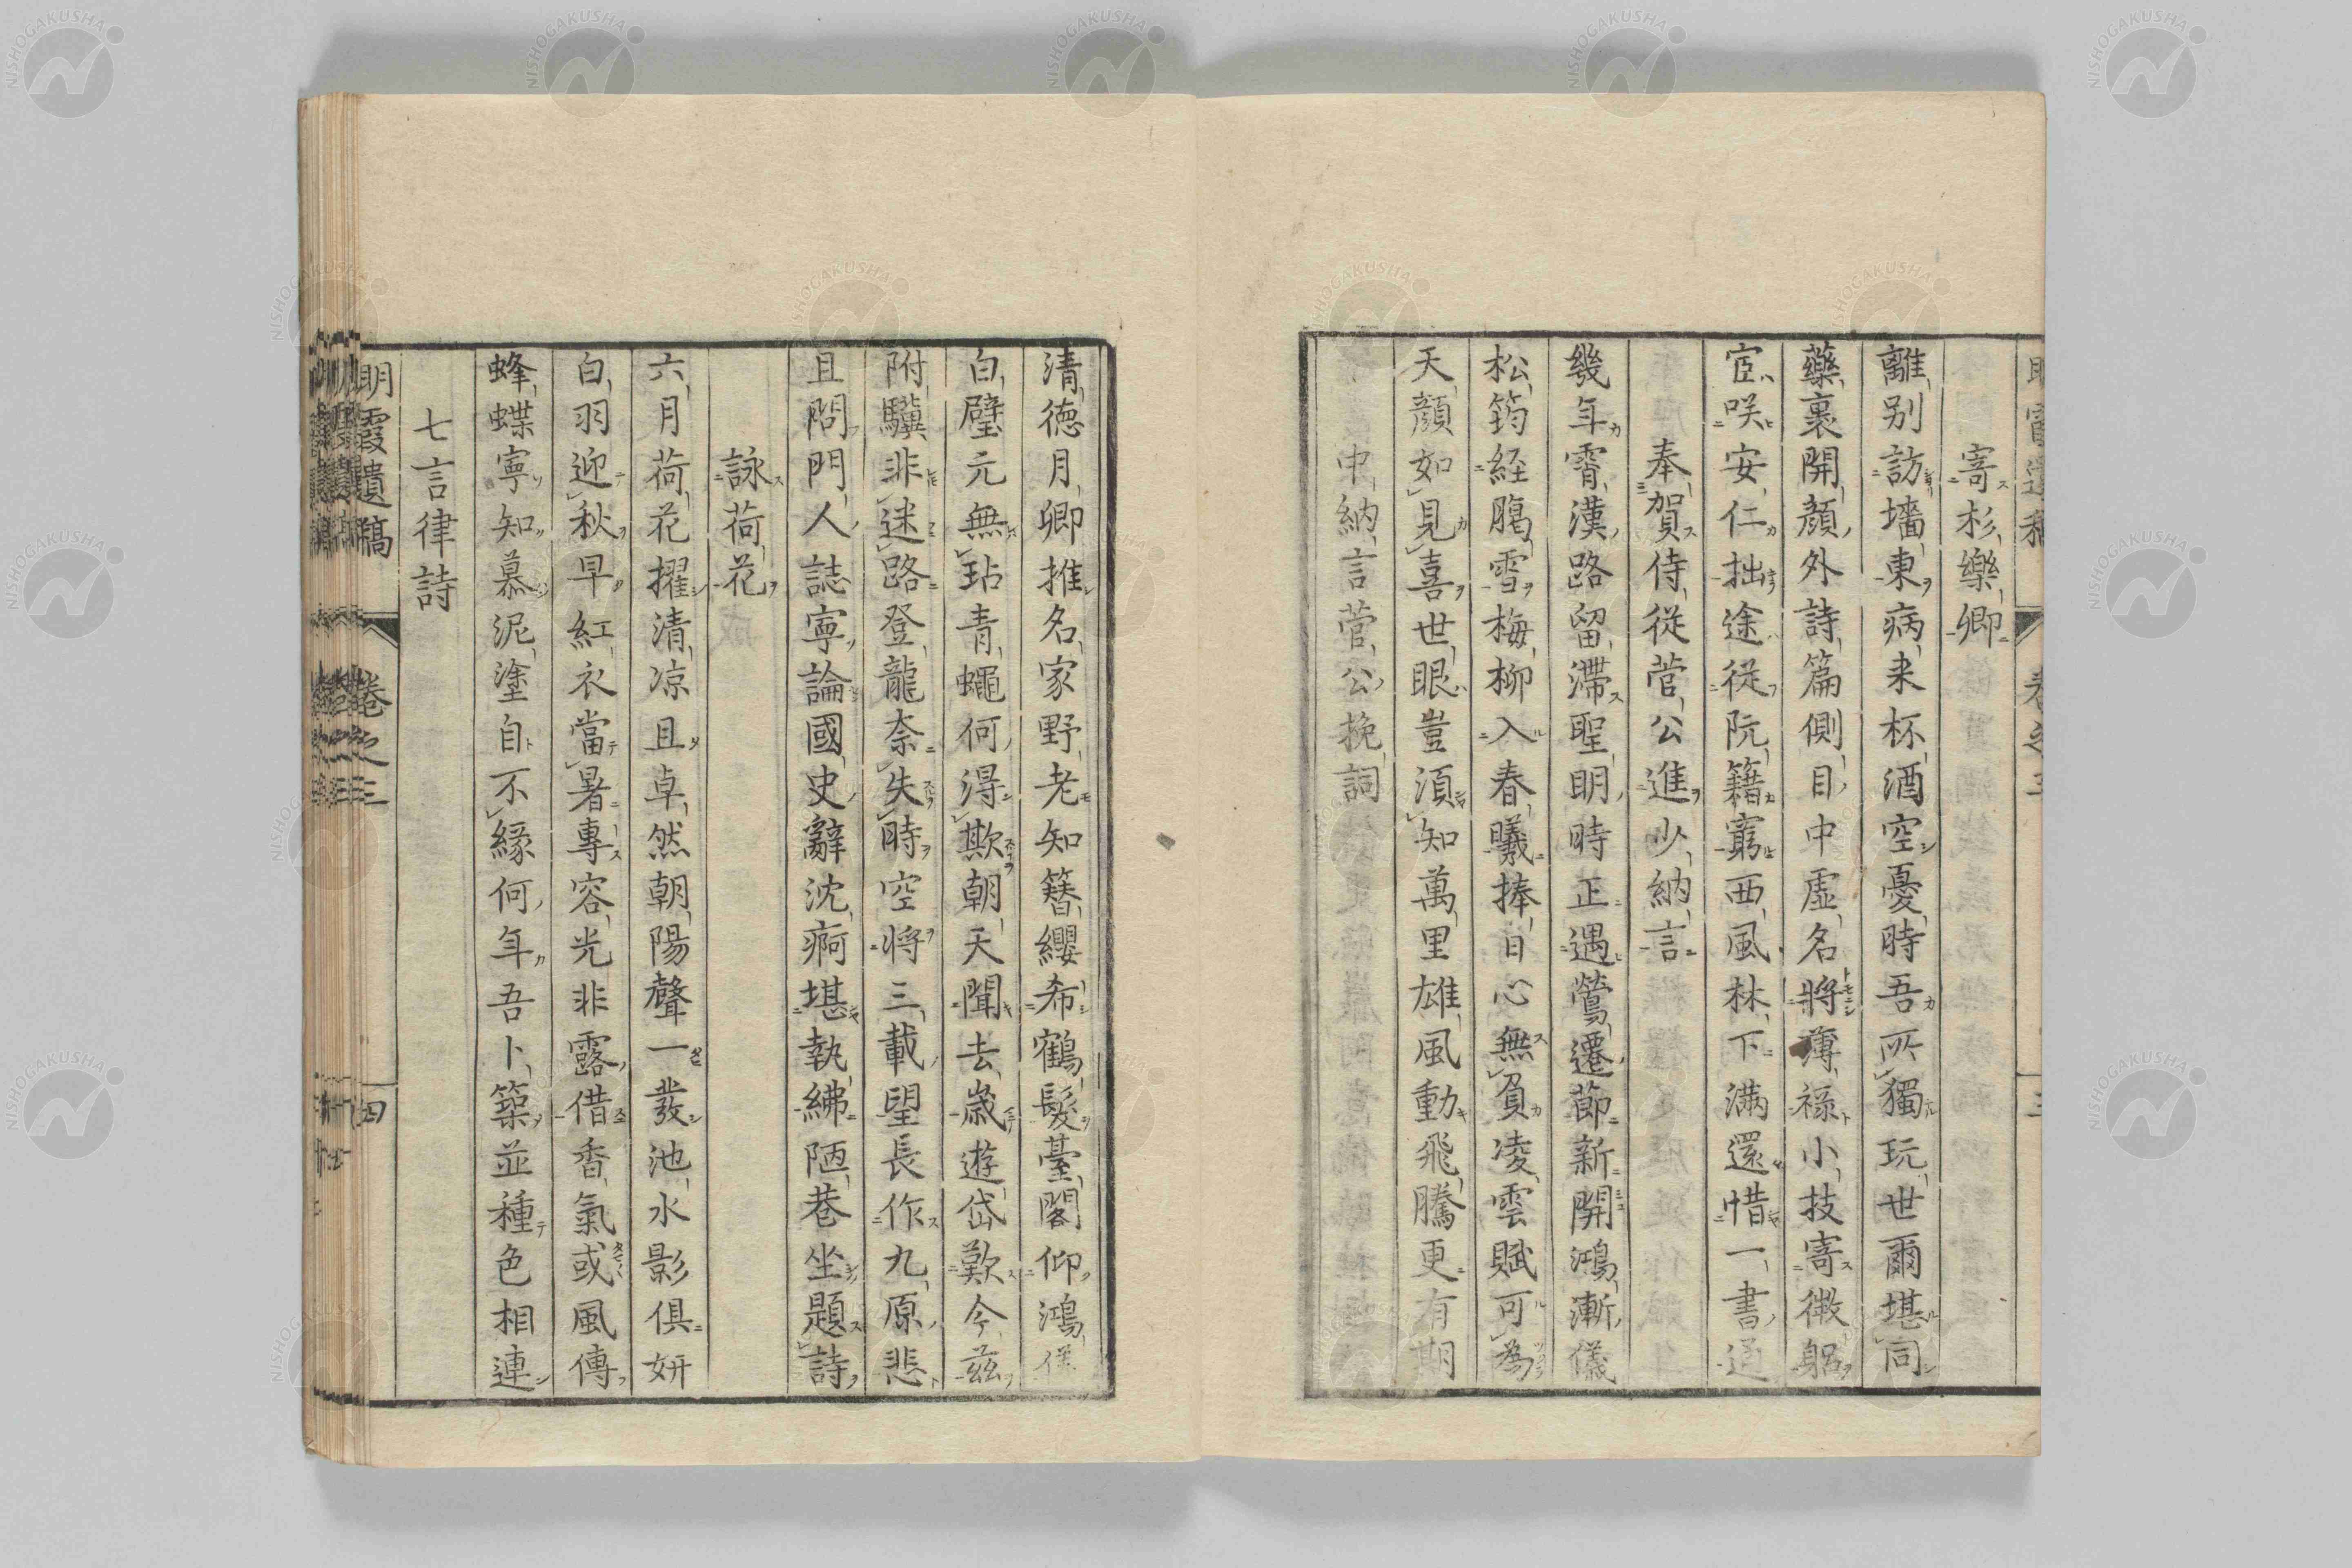 寄杉樂卿
離別訪墻東病来杯酒空憂時吾所獨玩世爾堪同
藥裹開顔外詩篇側目中虛名將薄祿小技寄微躬
宦咲安仁拙途從阮籍窮西風林下滿還惜一書通
奉賀侍從菅公進少納言
幾年霄漢路留滯聖明時正遇鶯遷節新開鴻漸儀
松筠経臈雪梅柳入春曦捧日心無負凌雲賦可為
天顔如見喜世眼豈須知萬里雄風動飛騰更有期
中納言菅公挽詞
清德月卿推名家野老知簪纓希鶴髮臺閣仰鴻儀
白璧元無玷青蠅何得欺朝天聞去歲遊岱歎今茲
附驥非迷路登龍奈失時空將三載望長作九原悲
且問門人誌寧論國史辭沈痾堪執紼陋巷坐題詩
詠荷花
六月荷花擢清凉且卓然朝陽聲一發池水影俱妍
白羽迎秋早紅衣當暑專容光非露借香氣或風傳
蜂蝶寧知慕泥塗自不縁何年吾卜築並種色相連
七言律詩
明霞遺稿 卷之三 四
NISHOGAKUSHA